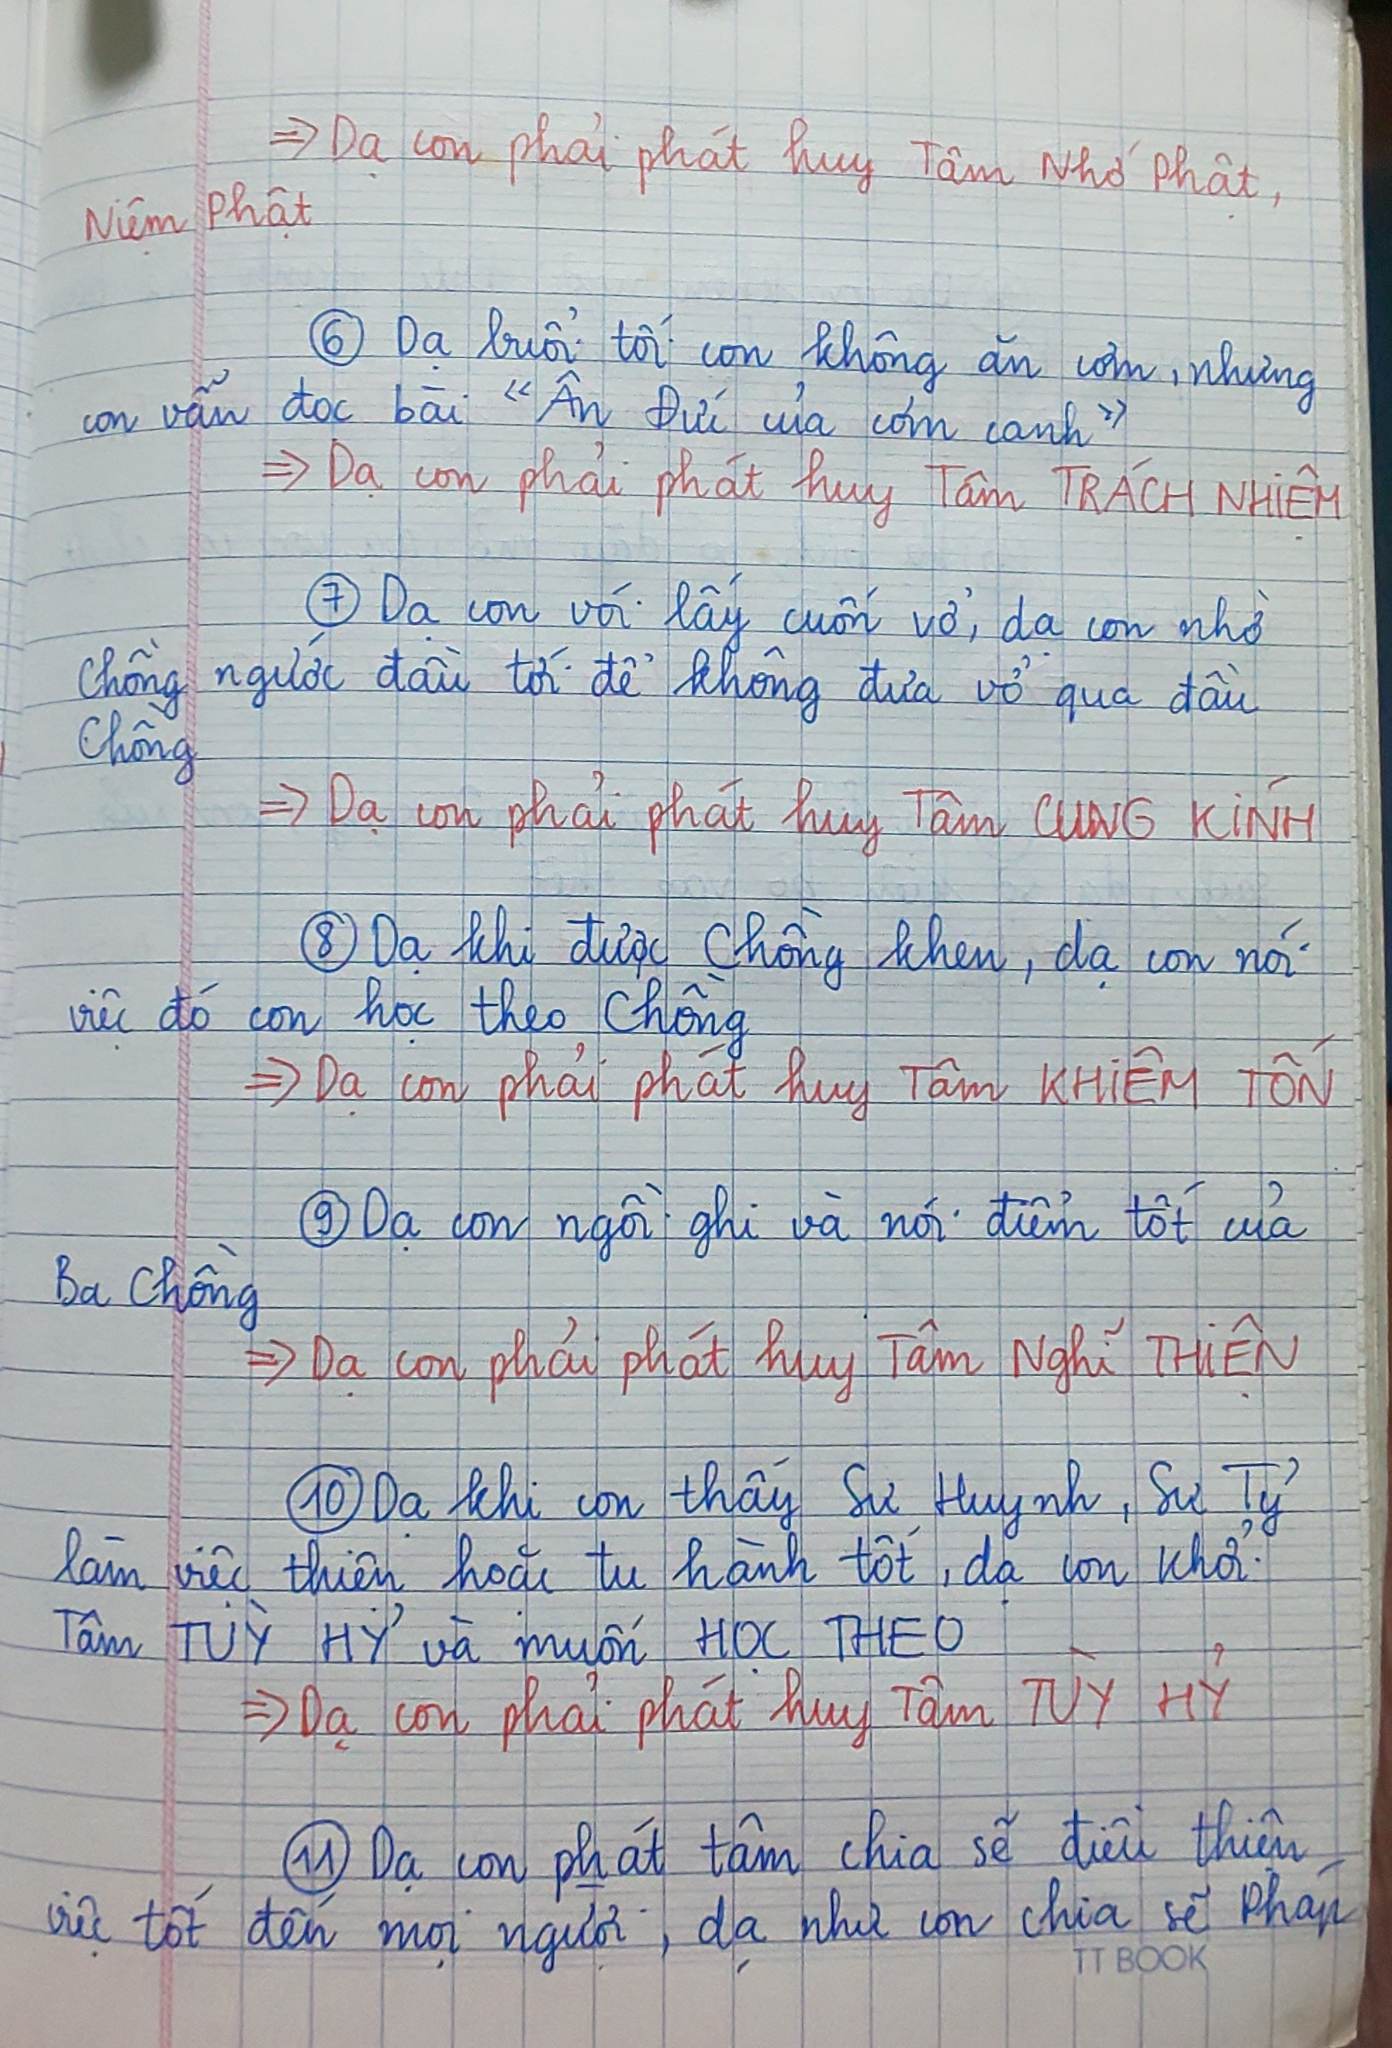 => Dạ con phải phát huy Tâm Nhớ Phật,
Niệm Phật
⑥ Dạ buổi tối con không ăn cơm, nhưng
con vẫn đọc bài "Ân Đức của cơm canh"
=> Dạ con phải phát huy Tâm TRÁCH NHIỆM
⑦ Dạ con với lấy cuốn vở, dạ con nhờ
Chồng ngước đầu tới để không đưa vở qua đầu
Chồng
=> Dạ con phải phát huy Tâm CUNG KÍNH
⑧ Dạ khi được Chồng khen, dạ con nói
việc đó con học theo Chồng
=> Dạ con phải phát huy Tâm KHIÊM TỐN
⑨ Dạ con ngồi ghi và nói điểm tốt của
Ba Chồng
=> Dạ con phải phát huy Tâm Nghĩ THIỆN
⑩ Dạ khi con thấy Sư Huynh, Sư Tỷ
làm việc thiện hoặc tu hành tốt, dạ con khởi
Tâm TUỲ HỶ và muốn HỌC THEO
=> Dạ con phải phát huy Tâm TÙY HỶ
⑪ Dạ con phát tâm chia sẽ điều thiện
việc tốt đến mọi người, dạ như con chia sẽ Pháp
TT BOOK